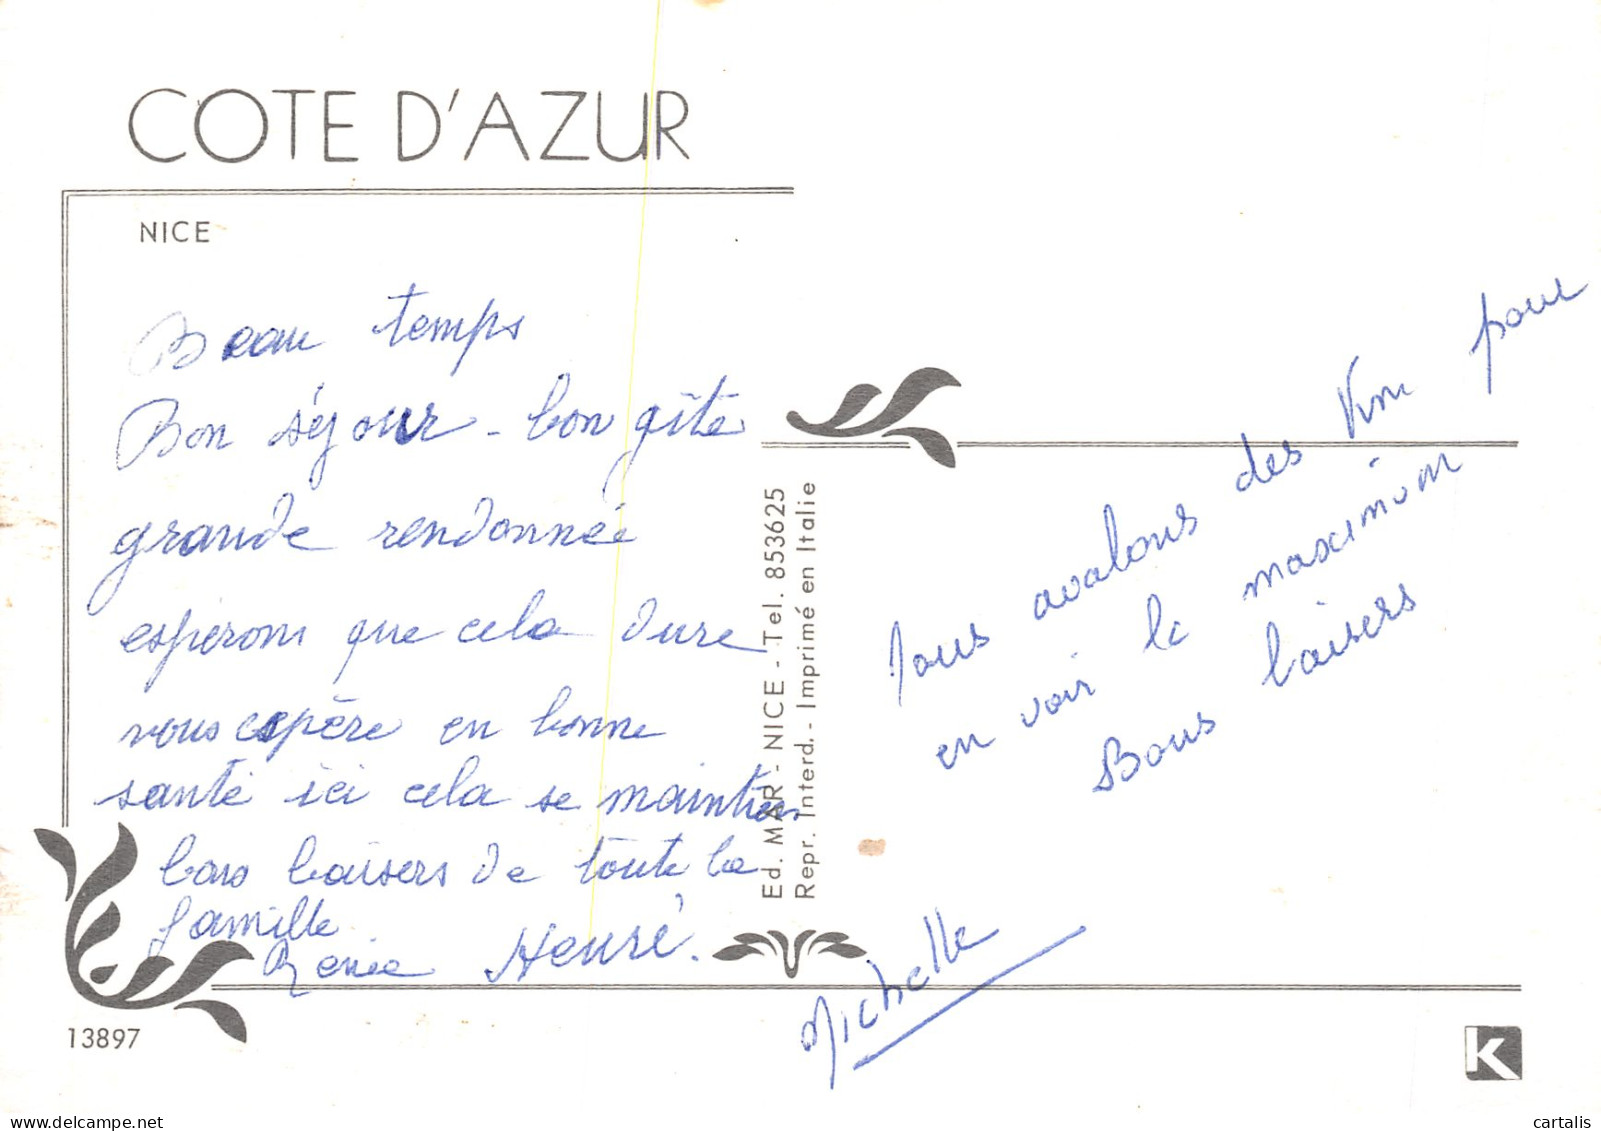 COTE D'AZUR
NICE
Beau temps
Bon séjour - bon gîte
grande rendonnée
esperons que cela dure
vous espère en bonne
santé ici cela se maintien
bons baisers de toute la
famille
Renée Henri.
Ed. MAR - NICE - Tel. 853625
Repr. Interd. - Imprimé en Italie
Nous avalons des Km pour
en voir le maximum
Bons baisers
Michelle
13897
K
cartalis
https://www.delcampe.net